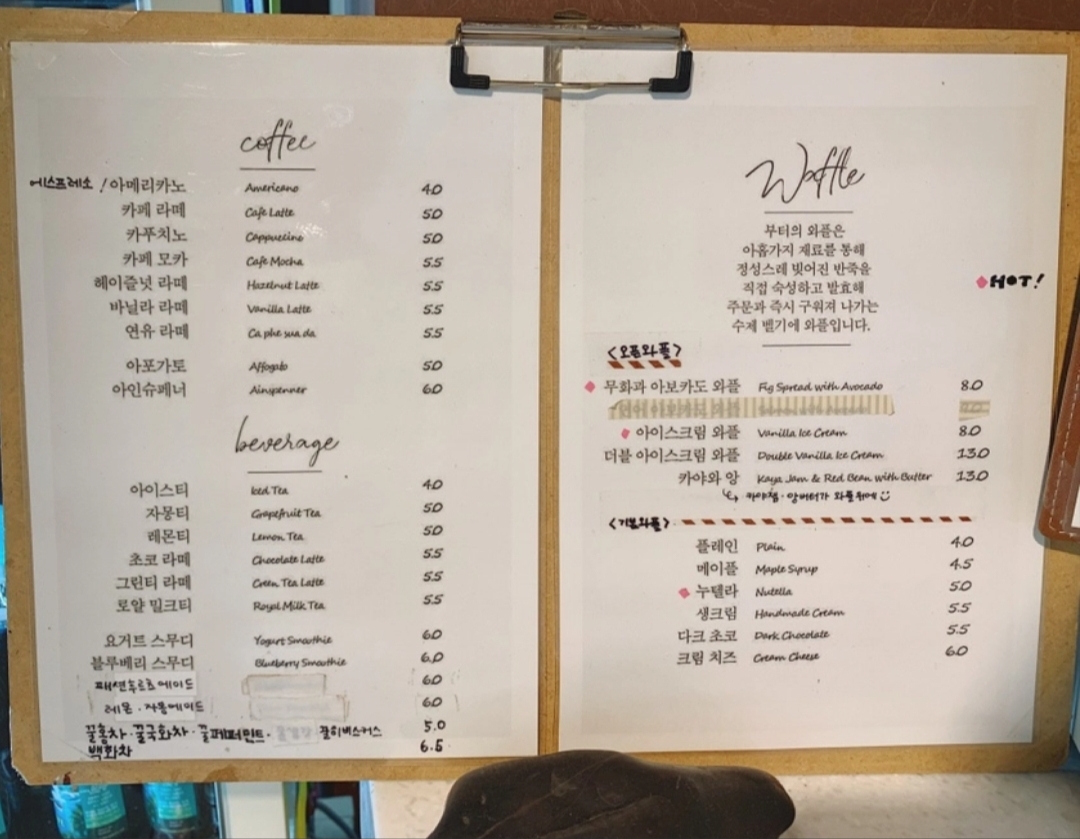 coffee
에스프레소 / 아메리카노 Americano 4.0
카페 라떼 Cafe Latte 5.0
카푸치노 Cappuccino 5.0
카페 모카 Cafe Mocha 5.5
헤이즐넛 라떼 Hazelnut Latte 5.5
바닐라 라떼 Vanilla Latte 5.5
연유 라떼 Ca phe sua da 5.5
아포가토 Affogato 5.0
아인슈페너 Ainspenner 6.0
beverage
아이스티 Iced Tea 4.0
자몽티 Grapefruit Tea 5.0
레몬티 Lemon Tea 5.0
초코 라떼 Chocolate Latte 5.5
그린티 라떼 Green Tea Latte 5.5
로얄 밀크티 Royal Milk Tea 5.5
요거트 스무디 Yogurt Smoothie 6.0
블루베리 스무디 Blueberry Smoothie 6.0
패션후르츠에이드 6.0
레몬 · 자몽에이드 6.0
꿀홍차 · 꿀국화차 · 꿀페퍼민트 · 꿀히비스커스 5.0
백화차 6.5
Waffle
부터의 와플은
아홉가지 재료를 통해
정성스레 빚어진 반죽을
직접 숙성하고 발효해
주문과 즉시 구워져 나가는
수제 벨기에 와플입니다.
HOT!
<오픈와플>
무화과 아보카도 와플 Fig Spread with Avocado 8.0
아이스크림 와플 Vanilla Ice Cream 8.0
더블 아이스크림 와플 Double Vanilla Ice Cream 13.0
카야와 앙 Kaya Jam & Red Bean with Butter 13.0
↳ 카야잼 · 앙버터가 와플위에
<기본와플>
플레인 Plain 4.0
메이플 Maple Syrup 4.5
누텔라 Nutella 5.0
생크림 Handmade Cream 5.5
다크 초코 Dark Chocolate 5.5
크림 치즈 Cream Cheese 6.0